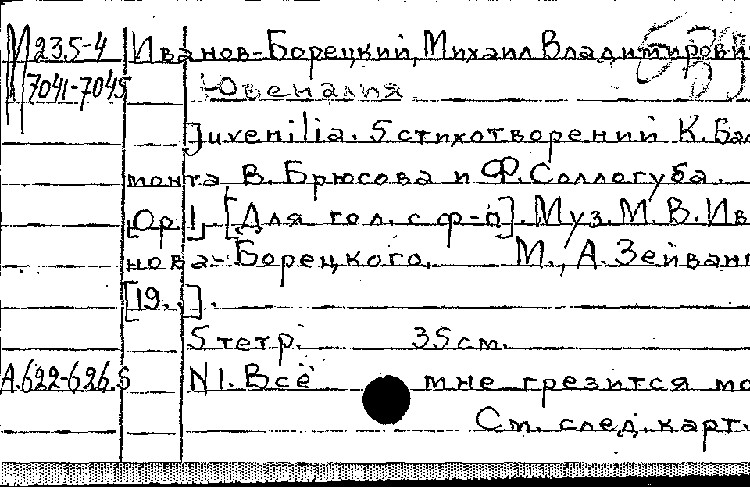 М 235-4 Иванов-Борецкий, Михаил Владимирови
7041-7045 Ювеналия
Juvenilia. 5 стихотворений К. Бал
монта В. Брюсова и Ф. Соллогуба.
[Op. 1]. [Для гол. с ф-п]. Муз. М. В. Ив
нова-Борецкого. М., А. Зейванг
[19..].
5 тетр. 35 см.
A.622-626.s N 1. Всё мне грезится мо
См. след. карт.